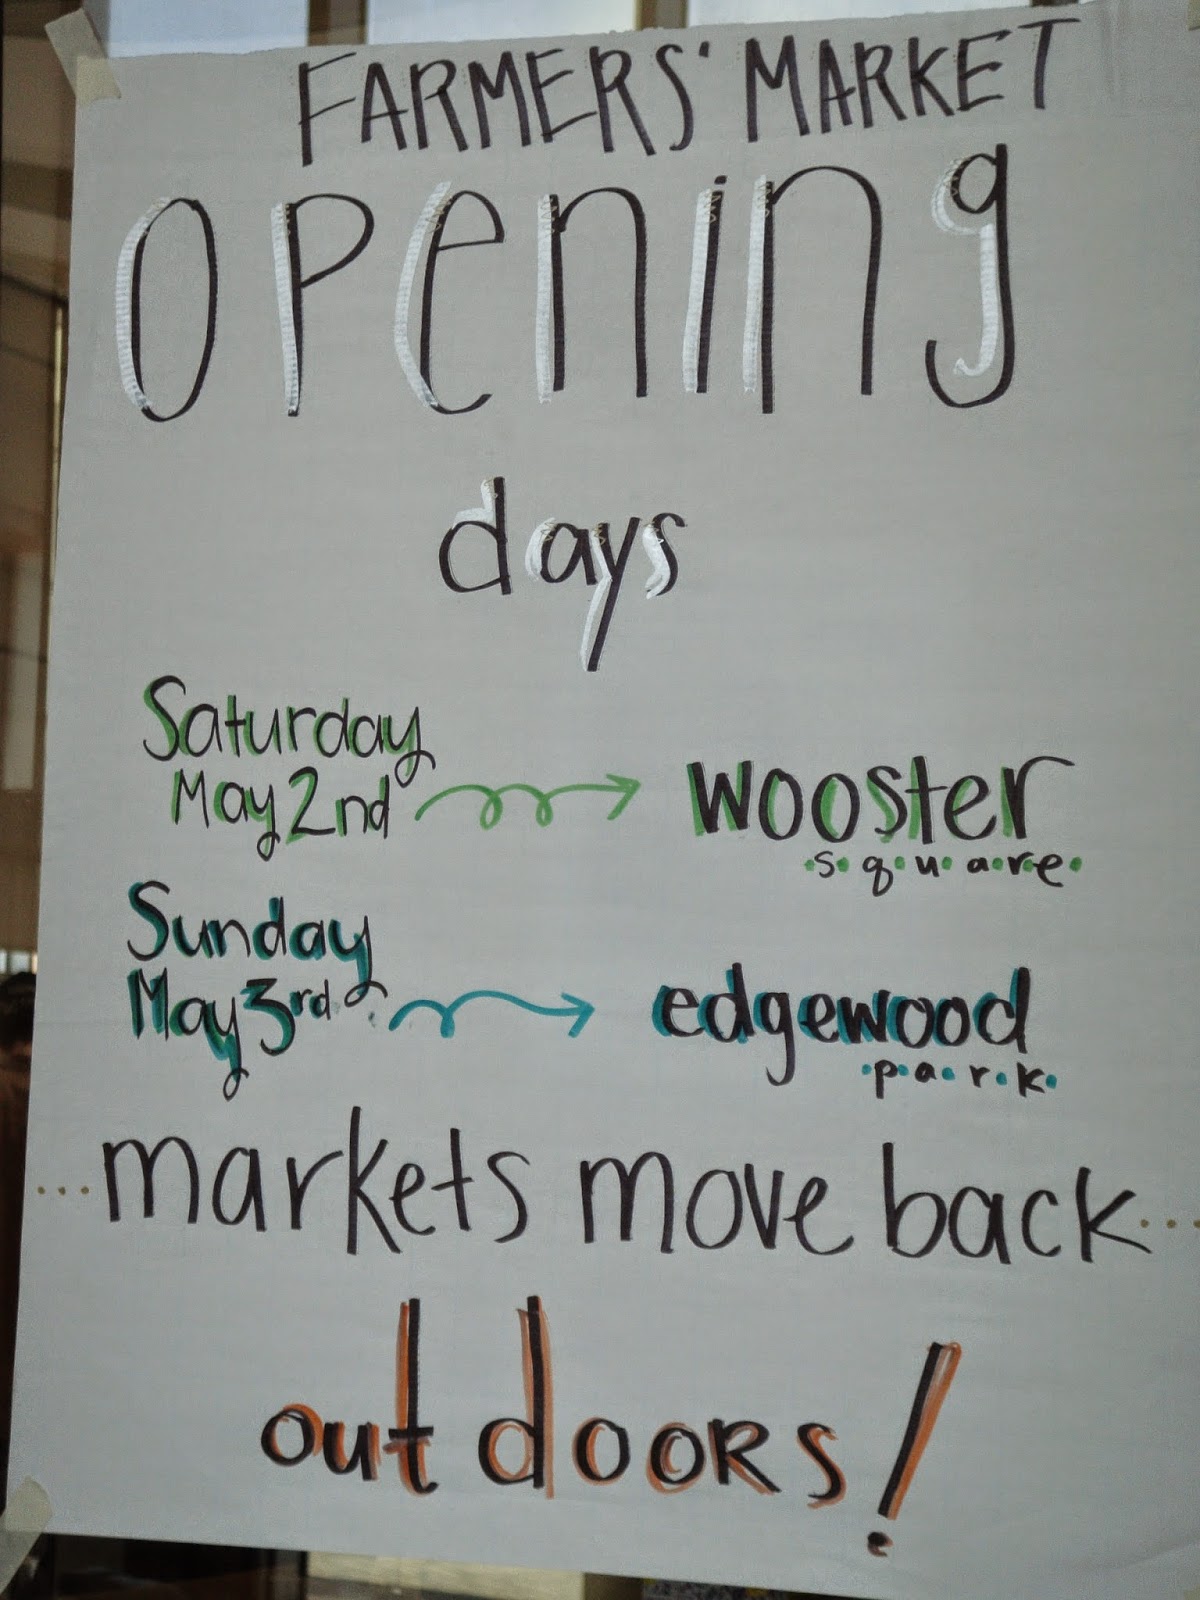 FARMERS' MARKET
opening
days
Saturday
May 2nd
wooster
square
Sunday
May 3rd
edgewood
park
...markets move back...
outdoors!